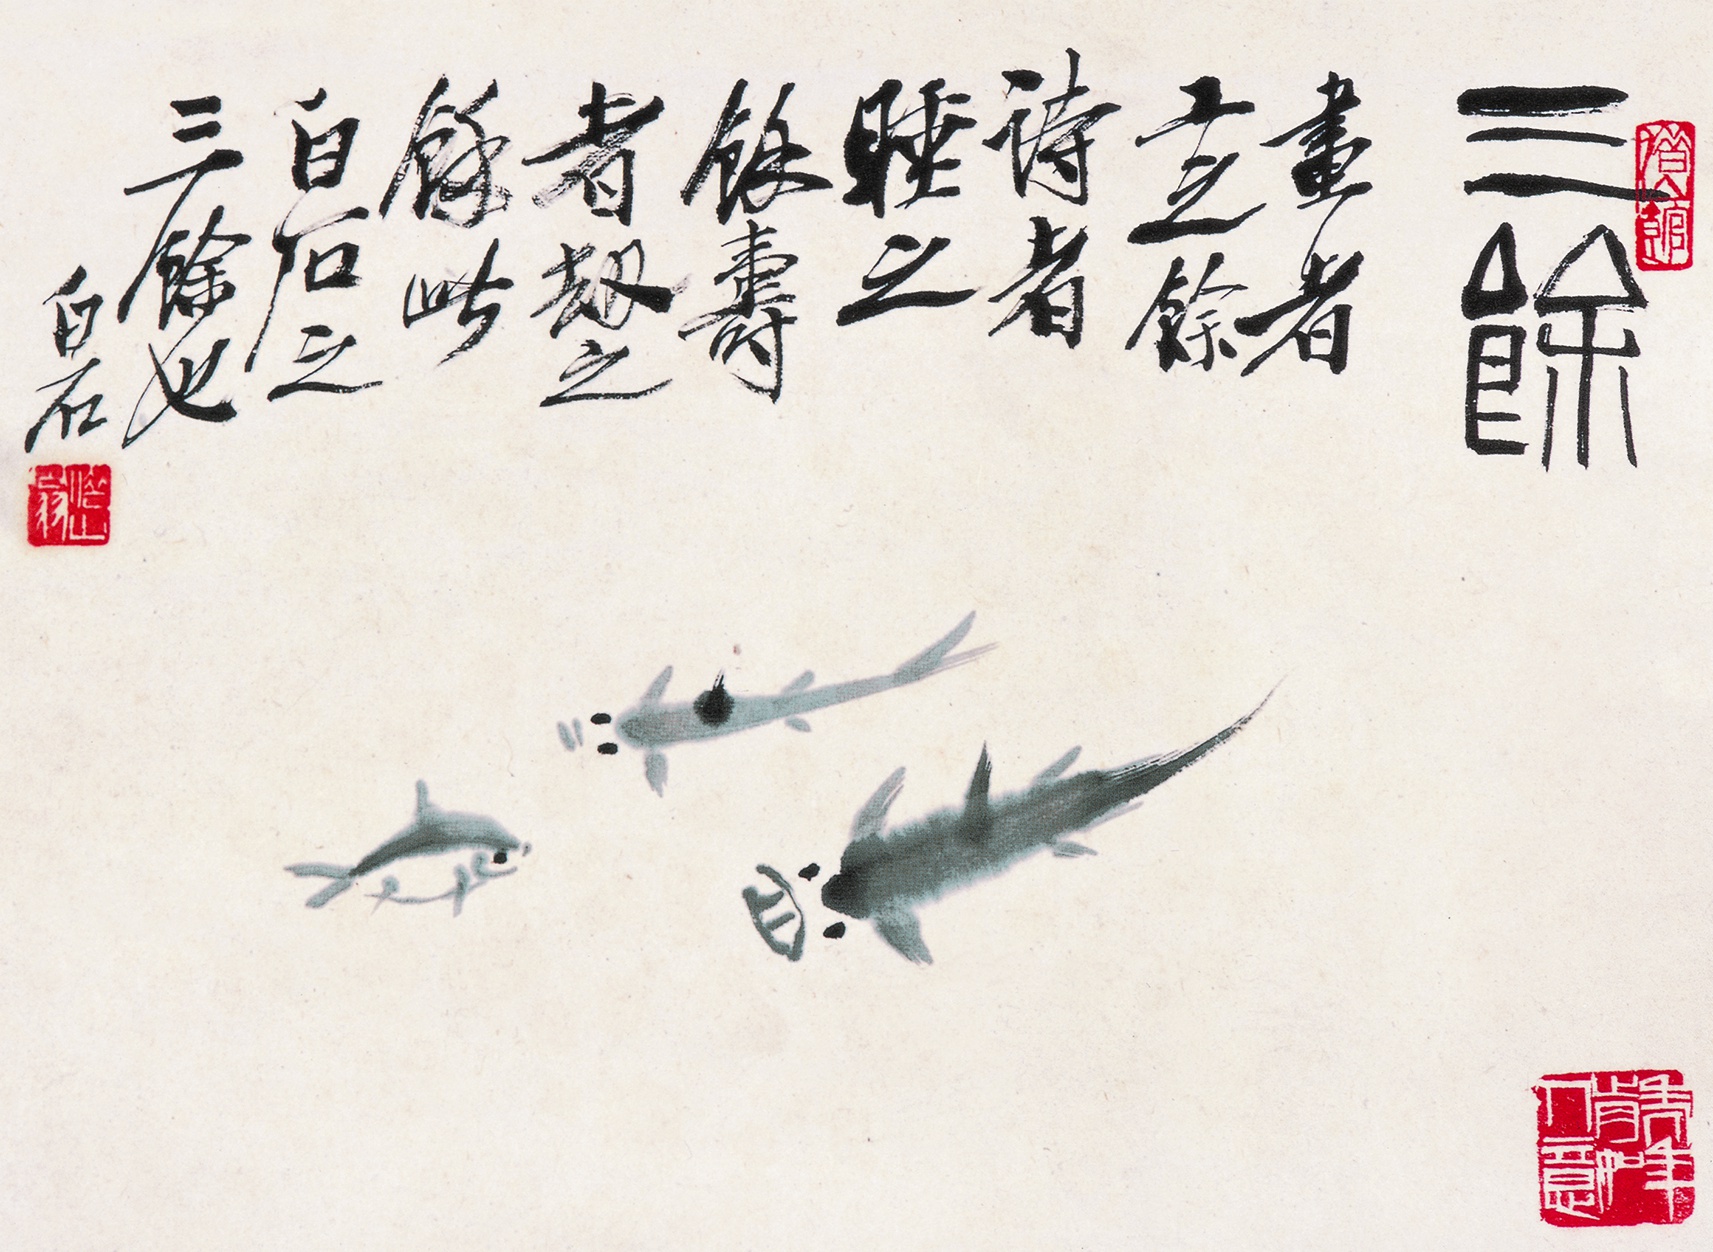 三餘
畫者
工之餘
詩者
睡之
餘壽
者劫之
餘此
白石之
三餘也
白石
借山翁